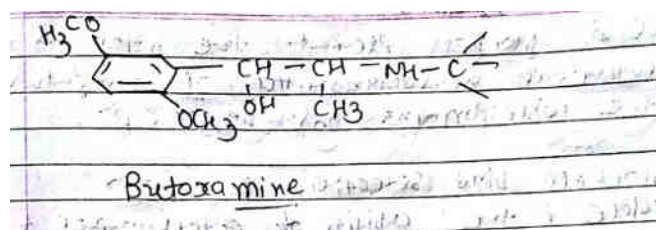 H3CO
CH - CH - NH - C
OH CH3
OCH3
Butoxamine